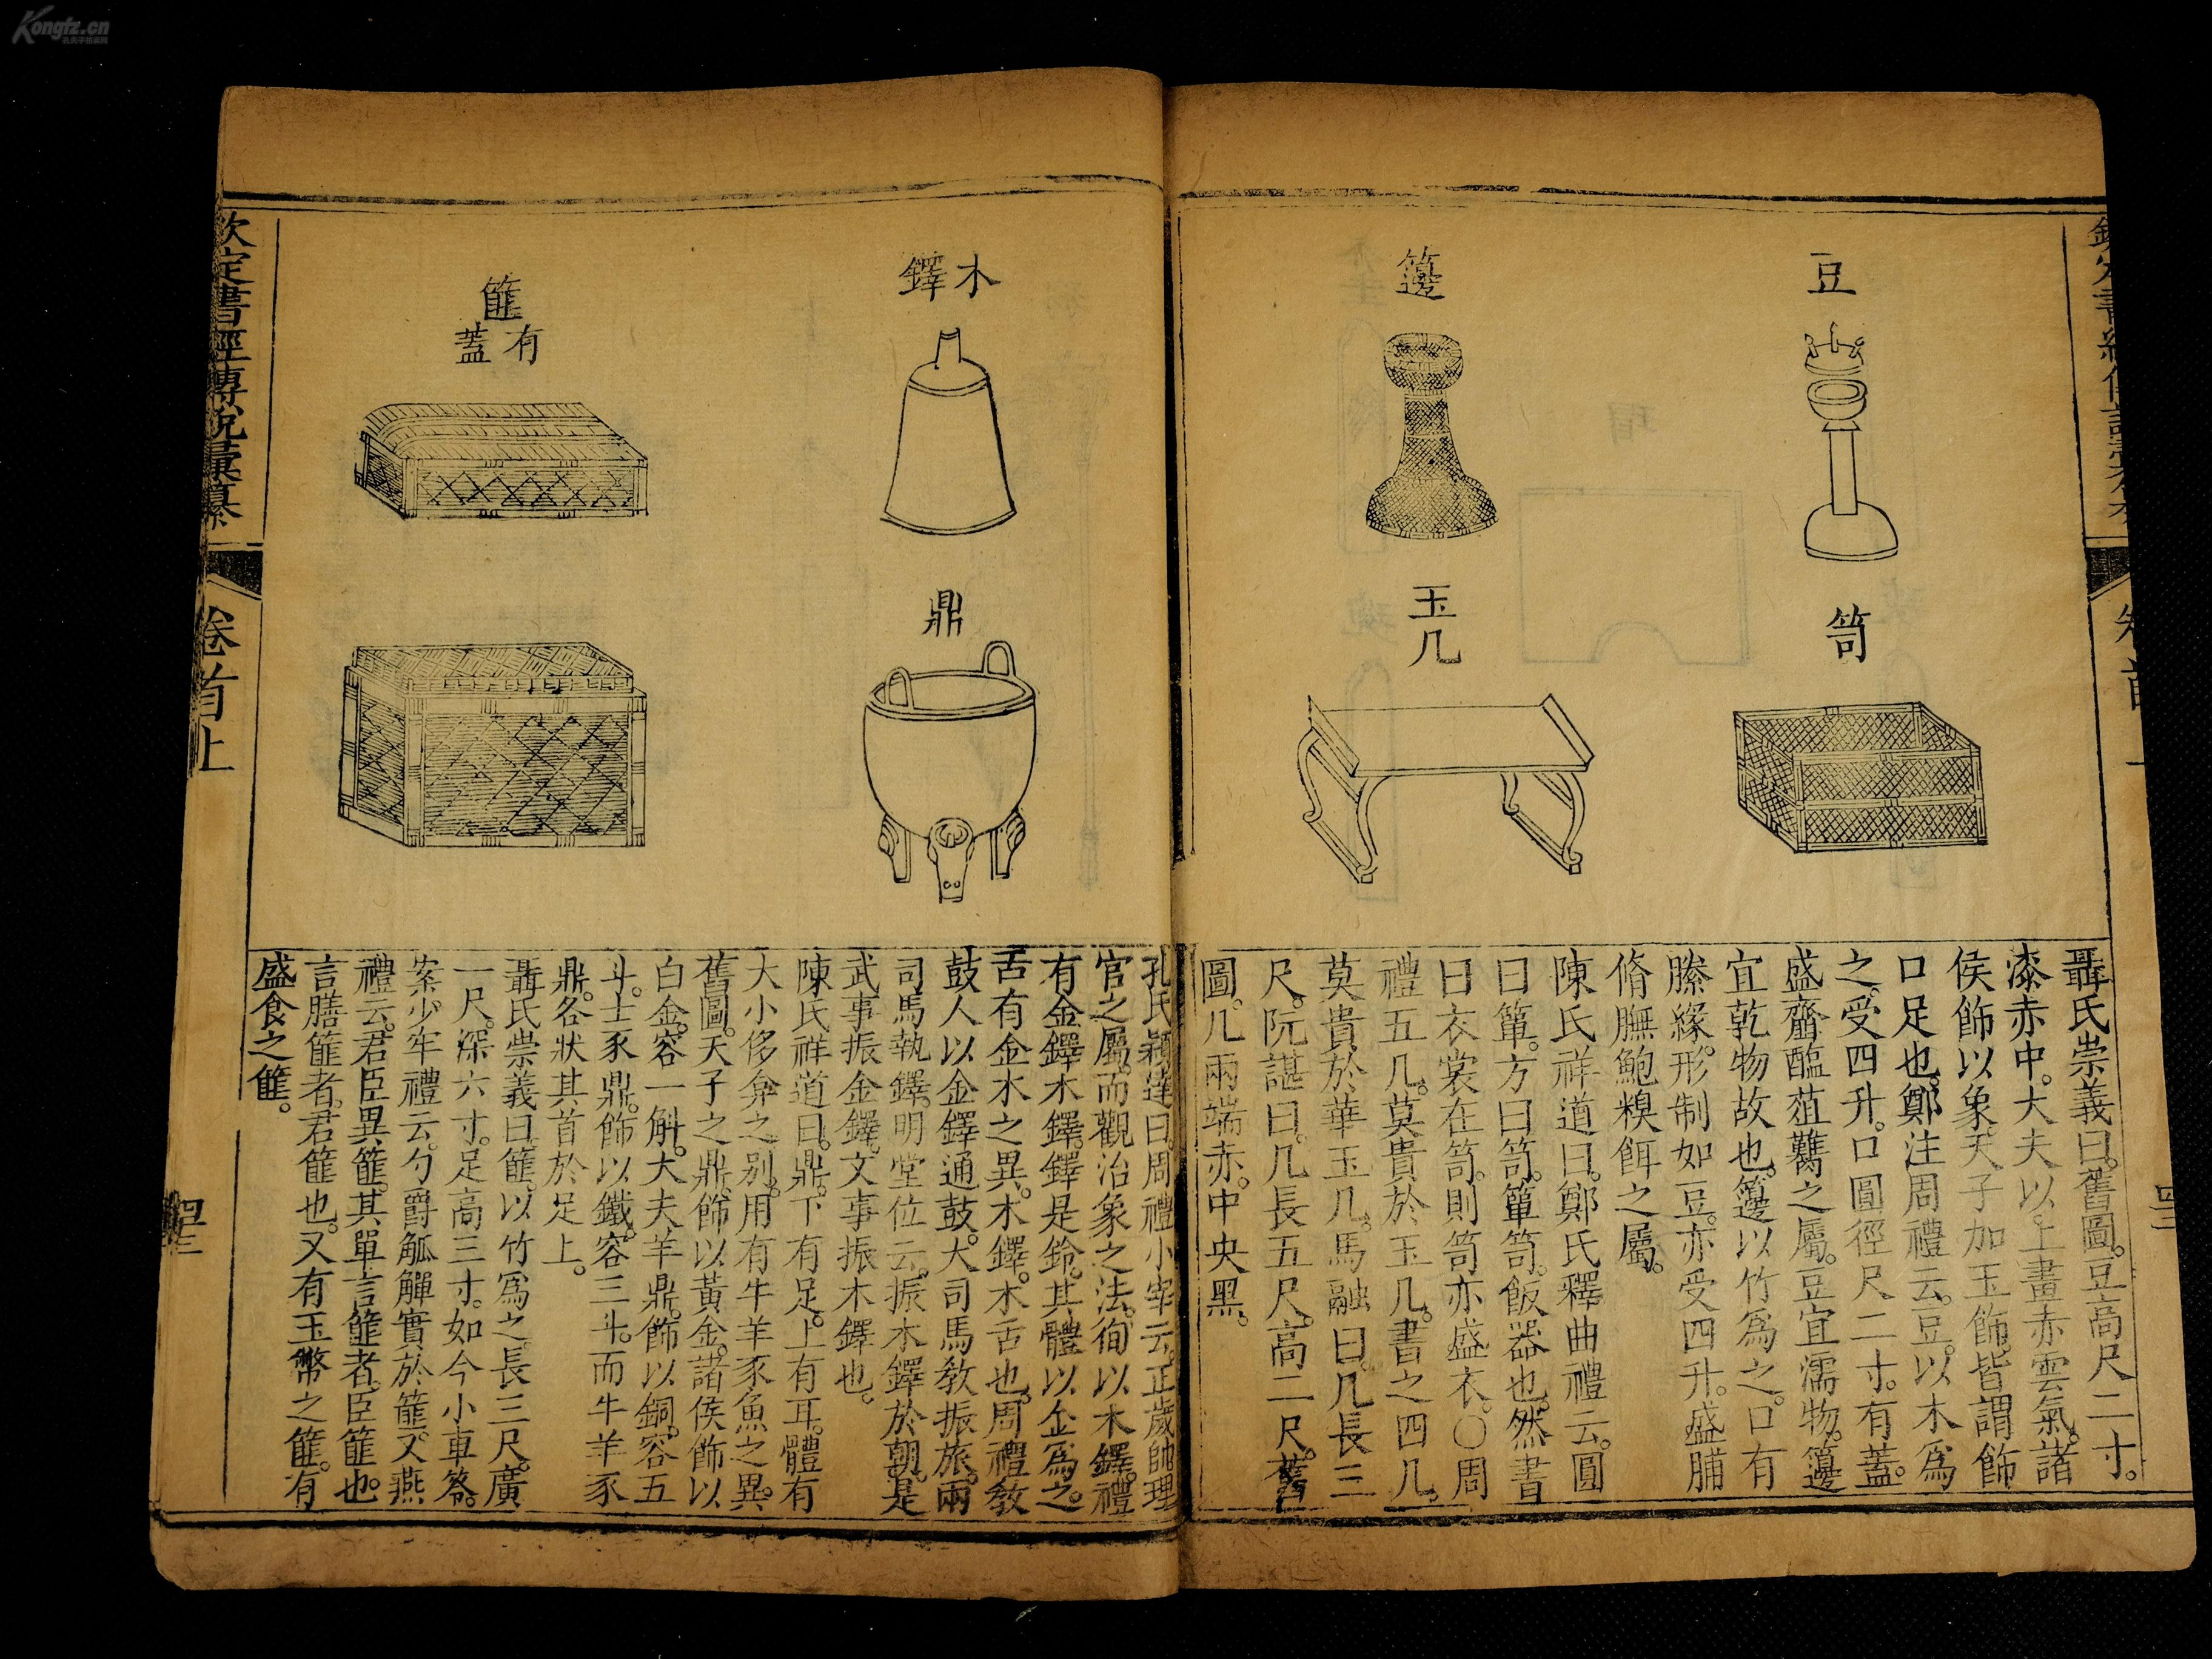 Kongfz.cn
豆
籩
笥
玉几
聶氏崇義曰。舊圖。豆高尺二寸。
漆赤中。大夫以。上畫赤雲氣。諸
侯飾以象。天子加玉飾。皆謂飾
口足也。鄭注周禮云。豆。以木爲
之。受四升。口圓徑尺二寸。有蓋。
盛齏醢菹臡之屬。豆宜濡物。籩
宜乾物故也。籩以竹爲之。口有
縢緣。形制如豆。亦受四升。盛脯
脩膴鮑糗餌之屬。
陳氏祥道曰。鄭氏釋曲禮云。圓
曰簞。方曰笥。簞笥。飯器也。然書
曰衣裳在笥。則笥亦盛衣。〇周
禮五几。莫貴於玉几。書之四几。
莫貴於華玉几。馬融曰。几長三
尺。阮諶曰。几長五尺。高二尺。舊
圖。几兩端赤。中央黑。
木鐸
鼎
篚
有蓋
孔氏穎達曰。周禮小宰云。正歲帥理
官之屬。而觀治象之法。徇以木鐸。禮
有金鐸木鐸。鐸是鈴。其體以金爲之。
舌有金木之異。木鐸。木舌也。周禮教
鼓人以金鐸通鼓。大司馬教振旅。兩
司馬執鐸。明堂位云。振木鐸於朝。是
武事振金鐸。文事振木鐸也。
陳氏祥道曰。鼎。下有足。上有耳。體有
大小侈弇之别。用有牛羊豕魚之異。
舊圖。天子之鼎。飾以黃金。諸侯飾以
白金。容一斛。大夫羊鼎。飾以銅。容五
斗。士豕鼎。飾以鐵。容三斗。而牛羊豕
鼎。各狀其首於足上。
聶氏崇義曰。篚。以竹爲之。長三尺。廣
一尺。深六寸。足高三寸。如今小車笭。
案少牢禮云。勺爵觚觶實於篚。又燕
禮云。君臣異篚。其單言篚者。臣篚也。
言膳篚者。君篚也。又有玉幣之篚。有
盛食之篚。
欽定書經傳說彙纂
卷首上